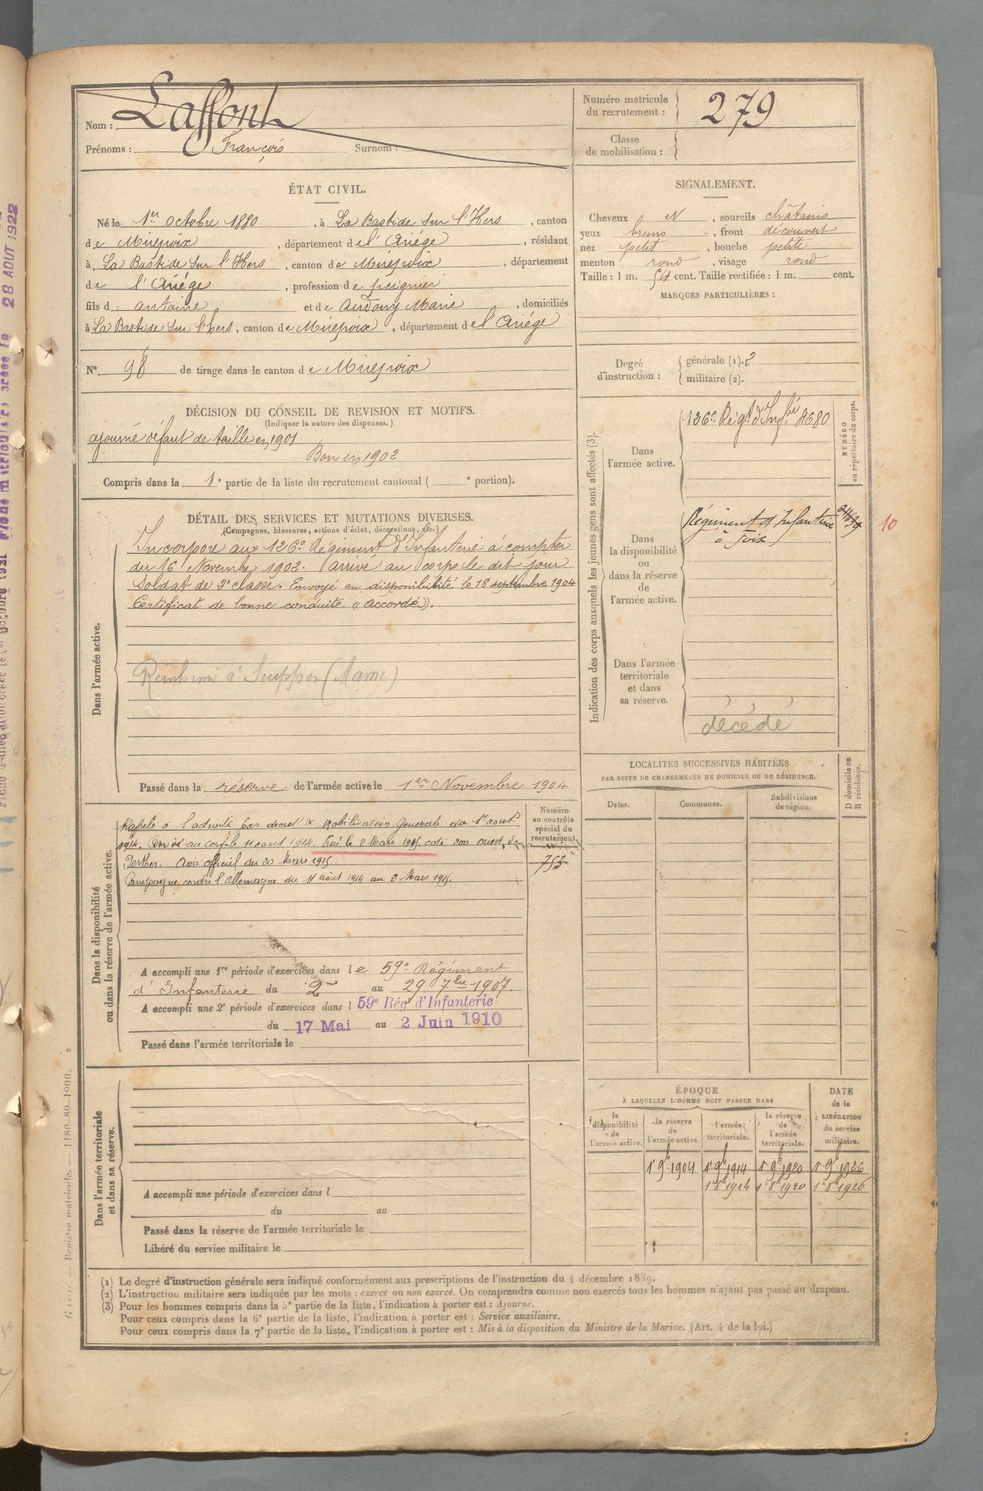 Nom : Laffont
Prénoms : François Surnom :
Numéro matricule du recrutement : 279
Classe de mobilisation :
ÉTAT CIVIL.
Né le 1er Octobre 1880, à La Bastide sur l'Hers, canton
de Mirepoix, département de l'Ariége, résidant
à La Bastide sur l'Hers, canton de Mirepoix, département
de l'Ariége, profession de peignier
fils d antoine et de Audouy Marie, domiciliés
à La Bastide sur l'hers, canton de Mirepoix, département de l'Ariége
N° 98 de tirage dans le canton de Mirepoix
DÉCISION DU CONSEIL DE REVISION ET MOTIFS.
(Indiquer la nature des dispenses.)
ajourné défaut de taille en 1901
Bon en 1902
Compris dans la 1e partie de la liste du recrutement cantonal ( e portion).
SIGNALEMENT.
Cheveux N, sourcils châtains
yeux bruns, front découvert
nez petit, bouche petite
menton rond, visage rond
Taille : 1 m. 54 cent. Taille rectifiée : 1 m. cent.
MARQUES PARTICULIÈRES :
Degré d'instruction : générale (1). 2
militaire (2).
DÉTAIL DES SERVICES ET MUTATIONS DIVERSES.
(Campagnes, blessures, actions d'éclat, décorations, etc.)
Dans l'armée active.
Incorporé au 126e Régiment d'Infanterie à compter
du 16 Novembre 1902. arrivé au corps le dit jour
Soldat de 2e classe. Envoyé en disponibilité le 18 septembre 1904
Certificat de bonne conduite « accordé ».
à Suippes (Marne)
Passé dans la réserve de l'armée active le 1er Novembre 1904
Indication des corps auxquels les jeunes gens sont affectés (3).
NUMÉRO au répertoire du corps.
Dans l'armée active.
126e Régt d'Infie 4680
Dans la disponibilité ou dans la réserve de l'armée active.
Régiment d'Infanterie
à Foix
10
Dans l'armée territoriale et dans sa réserve.
décédé
Dans la disponibilité ou dans la réserve de l'armée active.
Numéro au contrôle spécial du recrutement.
753
Rappelé à l'activité par décret de mobilisation générale du 1er aout
1914. Arrivé au corps le 11 aout 1914. Tué le 8 Mars 1915 cote 200 ouest de
Perthes. Avis officiel du 20 Mars 1915
Campagne contre l'allemagne du 11 août 1914 au 8 Mars 1915.
A accompli une 1re période d'exercices dans le 59e Régiment
d'Infanterie du 2 au 29 7bre 1907.
A accompli une 2e période d'exercices dans l 59e Régt d'Infanterie
du 17 Mai au 2 Juin 1910
Passé dans l'armée territoriale le
LOCALITÉS SUCCESSIVES HABITÉES
PAR SUITE DE CHANGEMENTS DE DOMICILE OU DE RÉSIDENCE.
D domicile ou R résidence.
Dates. Communes. Subdivisions de région.
Dans l'armée territoriale et dans sa réserve.
A accompli une période d'exercices dans l
du au
Passé dans la réserve de l'armée territoriale le
Libéré du service militaire le
ÉPOQUE
À LAQUELLE L'HOMME DOIT PASSER DANS
DATE de la LIBÉRATION du service militaire.
la disponibilité de l'armée active. la réserve de l'armée active. l'armée territoriale. la réserve de l'armée territoriale.
1er 9bre 1904 1er 9bre 1914 1er 9bre 1920 1er 9bre 1926
1er 8bre 1914 1er 8bre 1920 1er 8bre 1926
(1) Le degré d'instruction générale sera indiqué conformément aux prescriptions de l'instruction du 4 décembre 1889.
(2) L'instruction militaire sera indiquée par les mots : exercé ou non exercé. On comprendra comme non exercés tous les hommes n'ayant pas passé au drapeau.
(3) Pour les hommes compris dans la 5e partie de la liste, l'indication à porter est : Ajourné.
Pour ceux compris dans la 6e partie de la liste, l'indication à porter est : Service auxiliaire.
Pour ceux compris dans la 7e partie de la liste, l'indication à porter est : Mis à la disposition du Ministre de la Marine. (Art. 4 de la loi.)
Registre matricule. 1180-80-1900.
28 AOUT 1922